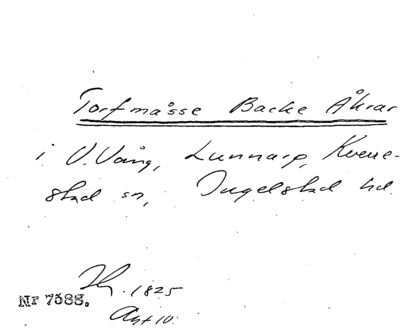 Torfmåsse Backe Åkrar
i V. Vång, Lunnarp, Kverre-
stad sn, Ingelstad hd.
1825
Nr 7388.
Aut 10.